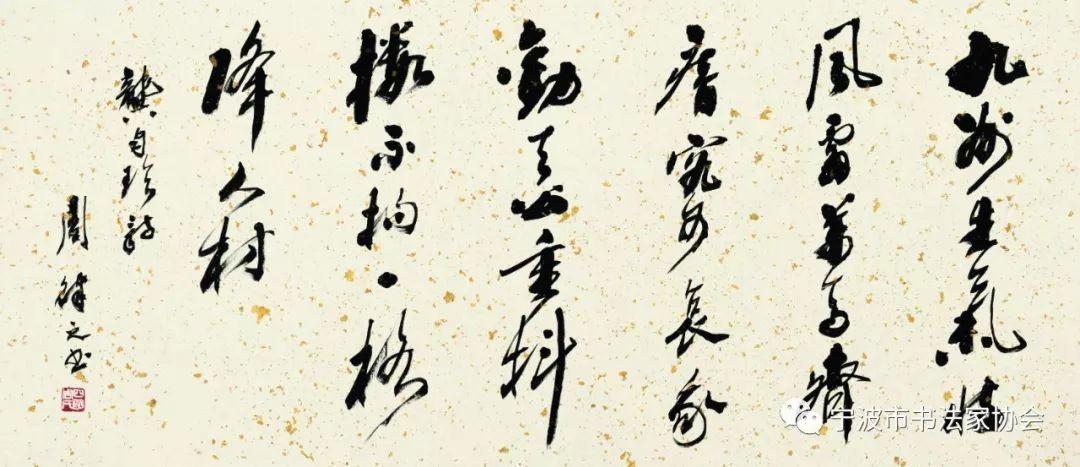 九州生氣恃
風雷萬馬齊
瘖究可哀我
勸天公重抖
擻不拘一格
降人材
龔自珍詩
周律之書
宁波市书法家协会